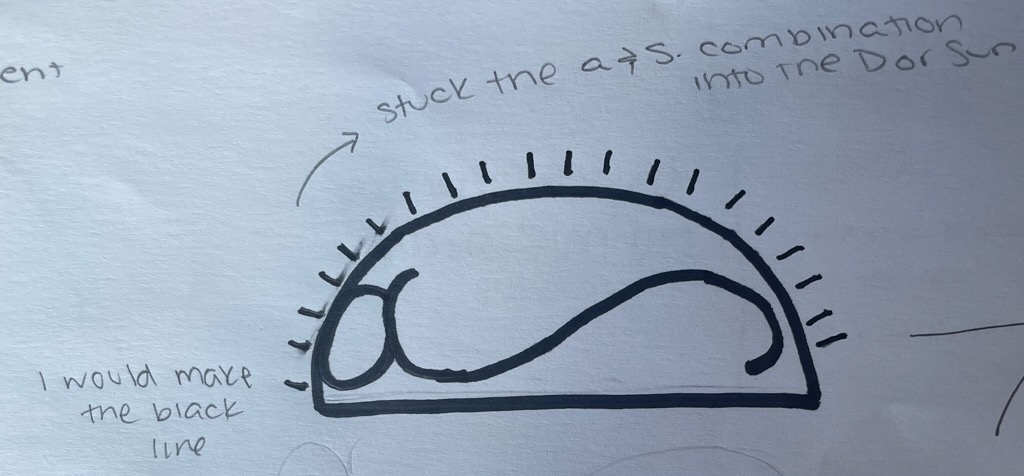 ent
stuck the a & S. combination
into the D or Sun
I would make
the black
line